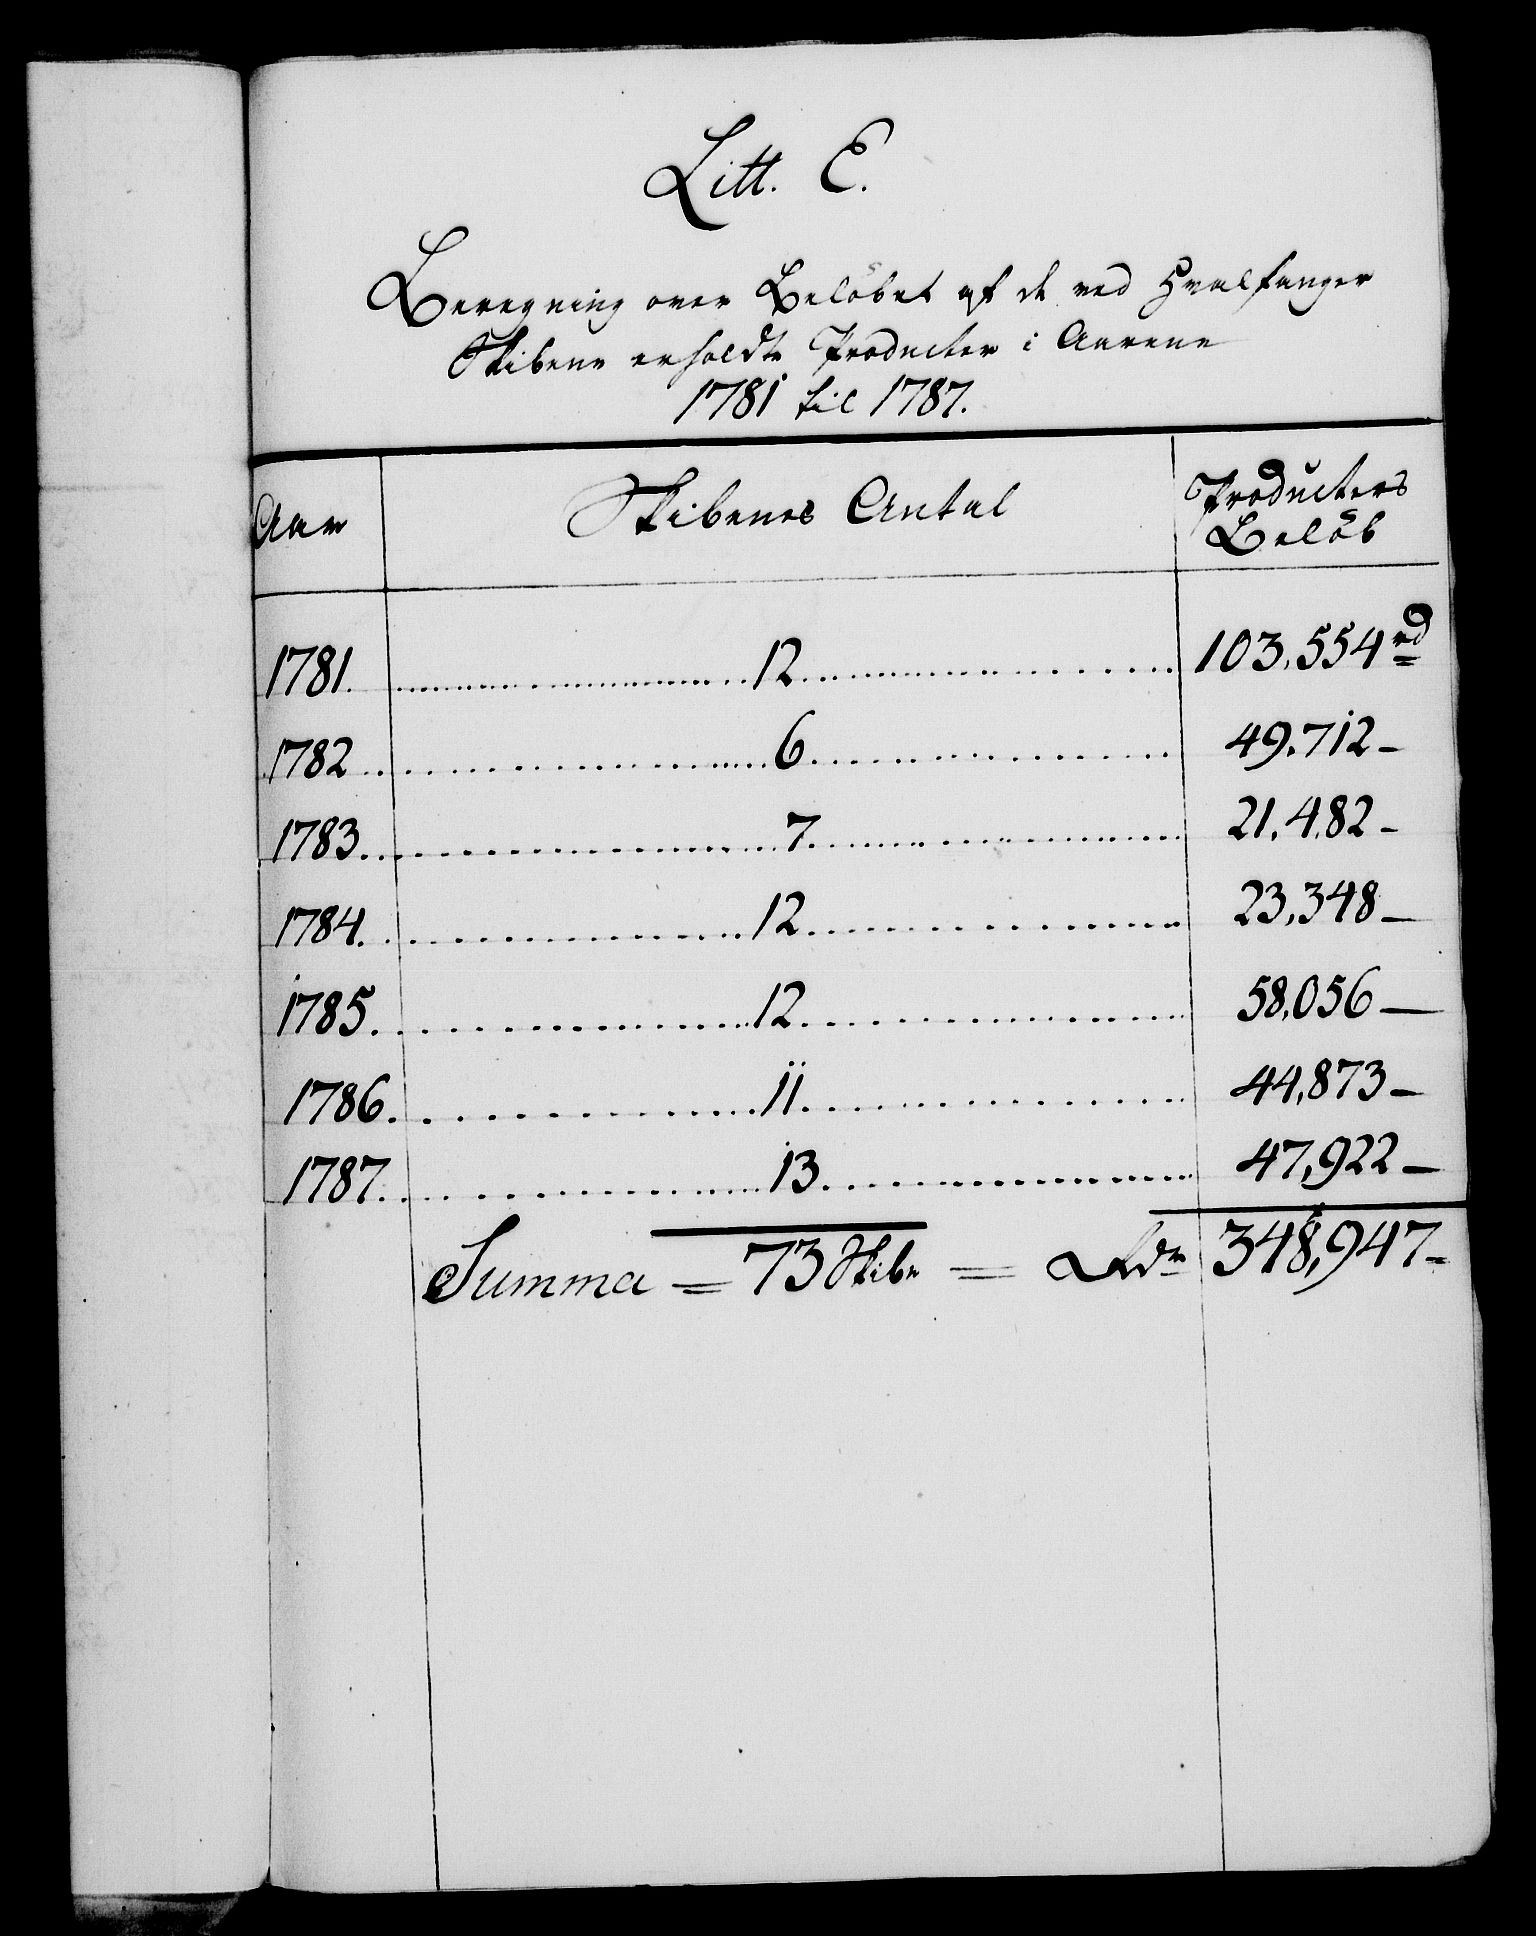 Litt. E.
Beregning over Beløbet af de ved Hvalfanger
Skibene erholdte Producter i Aarene
1781 til 1787.
Aar Skibenes Antal Producters Beløb
1781. 12 103,554 rd
1782 6 49,712 -
1783. 7 21,482 -
1784. 12 23,348 -
1785. 12 58,056 -
1786. 11 44,873 -
1787. 13 47,922 -
Summa = 73 Skibe = Rdr 348,947 -